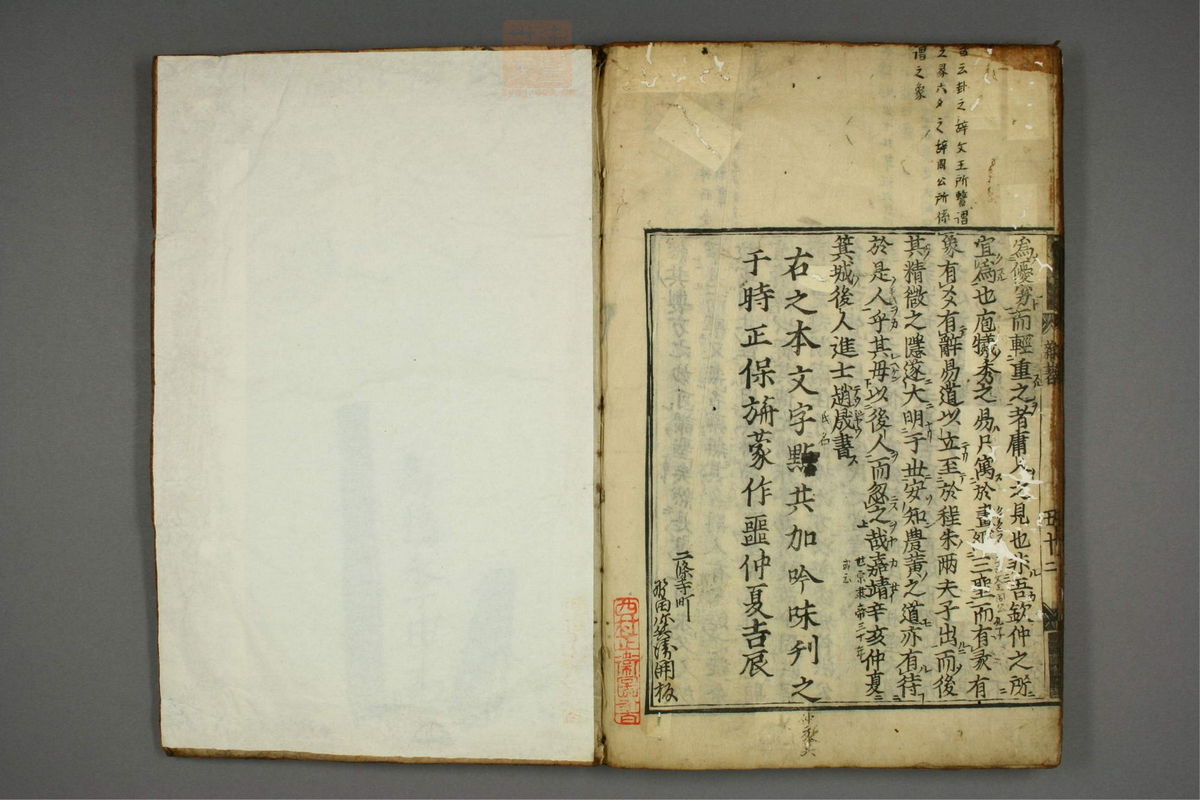 云卦之辞文王所繋謂
之彖六爻之辞周公所係
謂之象
為優劣而輕重之者庸人之見也非吾欽仲之所
宜為也庖犧秀之易只寓於畫孔三聖而有彖有
象有爻有辭易道以立至於程朱兩夫子出而後
其精微之隱遂大明于世安知農黃之道亦有待
於是人乎其毋以後人而忽之哉嘉靖辛亥仲夏
世宗肅帝三十年
箕城後人進士趙晟書
氏名
右之本文字點共加吟味刊之
于時正保旃蒙作噩仲夏吉辰
二條寺町
開板